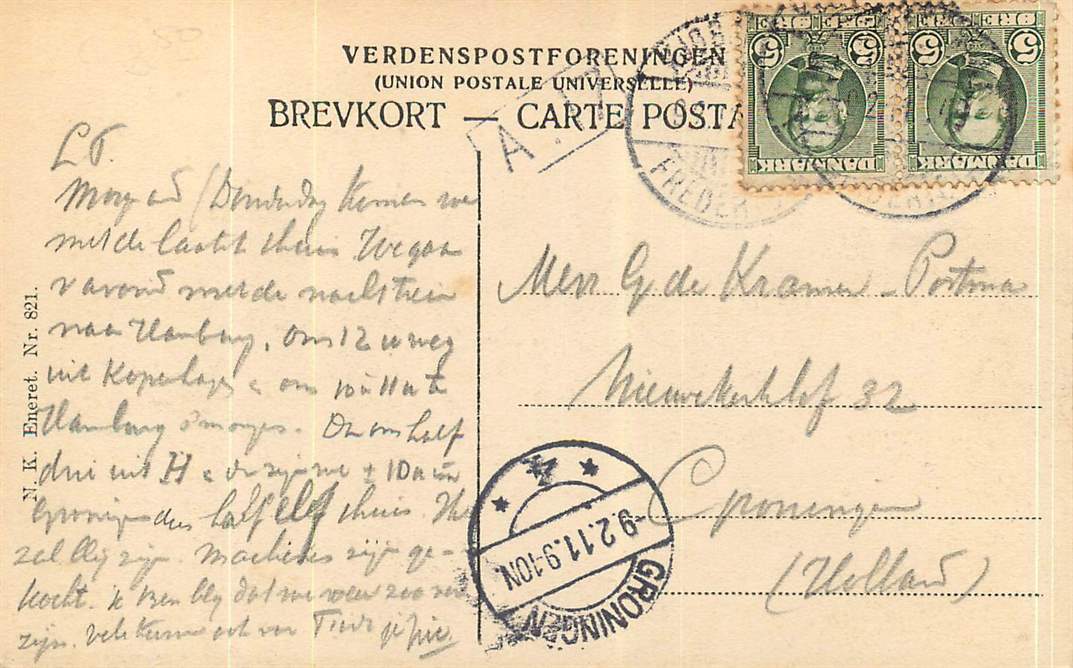 VERDENSPOSTFORENINGEN
(UNION POSTALE UNIVERSELLE)
BREVKORT — CARTE POSTA
5 ØRE 5
DANMARK
5 ØRE 5
DANMARK
FREDER
A
L T.
Morgen (Donderdag komen we
met de laatste thuis We gaan
v avond met de nachttrein
naar Hamburg, om 12 u weg
uit Kopenhagen om 10 u
Hamburg 's morgens. Dan om half
drie uit H en dan zijn we ± 10 u in
Groningen dus half elf thuis.
zal blij zijn. Machines zijn ge-
kocht. Ik ben blij dat we weer zoo
zijn. vele
N. K. Eneret. Nr. 821.
Mevr G de Kramer - Postma
Nieuwekerkhof 32
Groningen
(Holland)
-9.2.11.9-10N
GRONINGEN